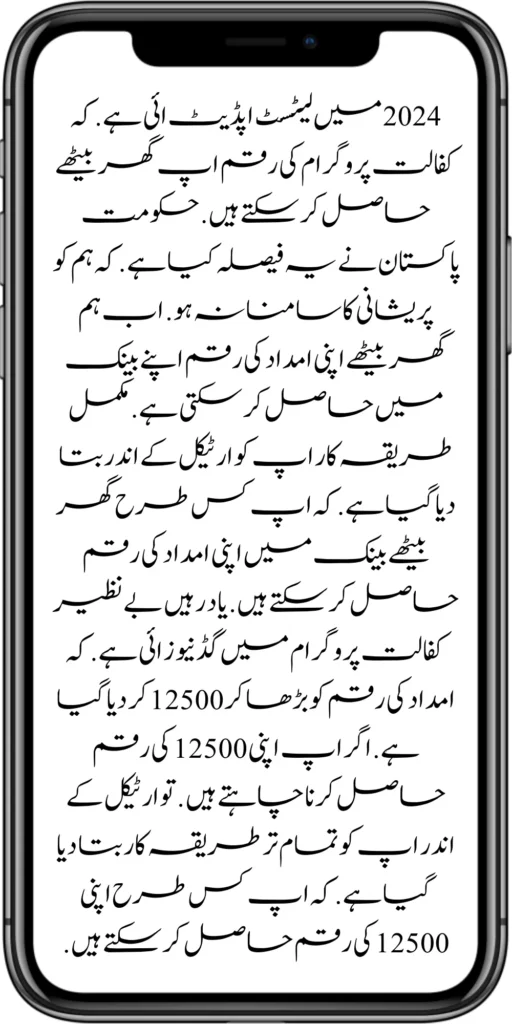 2024 میں لیٹسٹ اپڈیٹ ائی ہے. کہ
کفالت پروگرام کی رقم اپ گھر بیٹھے
حاصل کر سکتے ہیں. حکومت
پاکستان نے یہ فیصلہ کیا ہے. کہ ہم کو
پریشانی کا سامنا نہ ہو. اب ہم
گھر بیٹھے اپنی امداد کی رقم اپنے بینک
میں حاصل کر سکتی ہے. مکمل
طریقہ کار اپ کو ارٹیکل کے اندر بتا
دیا گیا ہے. کہ اپ کس طرح گھر
بیٹھے بینک میں اپنی امداد کی رقم
حاصل کر سکتے ہیں. یاد رہیں بے نظیر
کفالت پروگرام میں گڈ نیوز ائی ہے. کہ
امداد کی رقم کو بڑھا کر 12500 کر دیا گیا
ہے. اگر اپ اپنی 12500 کی رقم
حاصل کرنا چاہتے ہیں. تو ارٹیکل کے
اندر اپ کو تمام تر طریقہ کار بتا دیا
گیا ہے. کہ اپ کس طرح اپنی
12500 کی رقم حاصل کر سکتے ہیں.